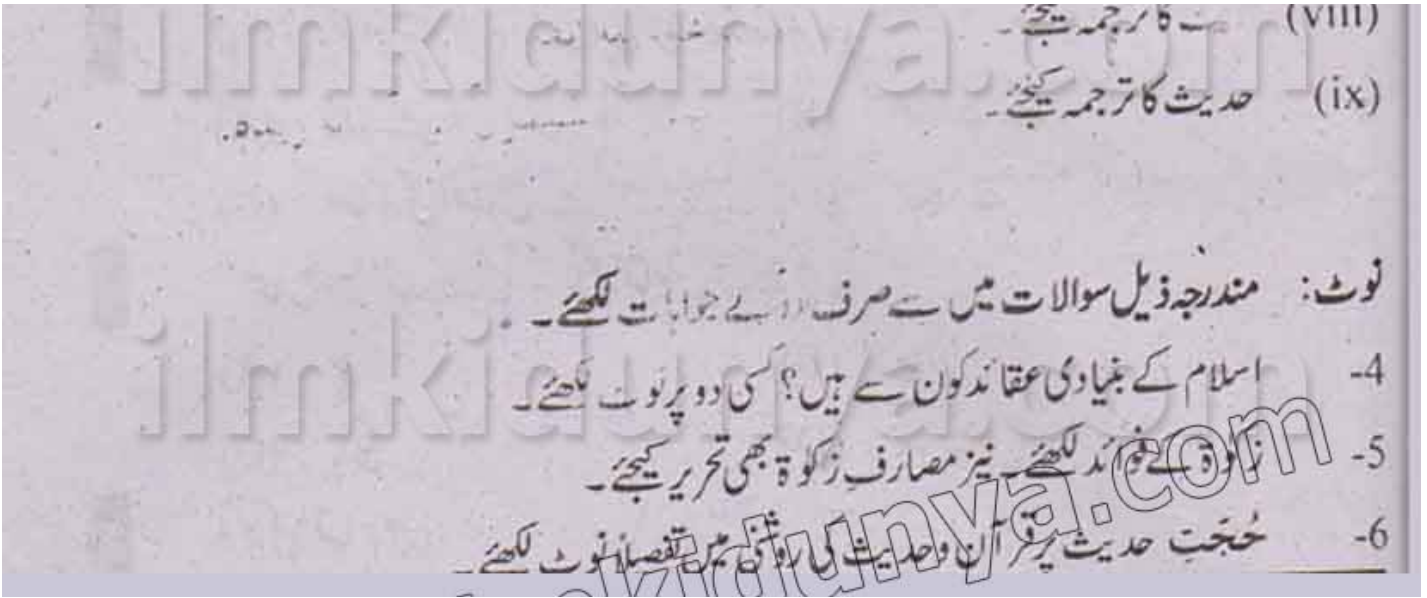 ilmkidunya.com
(viii) کا ترجمہ کیجئے۔
(ix) حدیث کا ترجمہ کیجئے۔
نوٹ: مندرجہ ذیل سوالات میں سے صرف کے جوابات لکھئے۔
ilmkidunya.com
4- اسلام کے بنیادی عقائد کون سے ہیں؟ کسی دو پر نوٹ لکھئے۔
5- زکوٰۃ کے فوائد لکھئے۔ نیز مصارفِ زکوٰۃ بھی تحریر کیجئے۔
6- حُجّتِ حدیث پر قرآن و حدیث کی روشنی میں تفصیلاً نوٹ لکھئے۔
ilmkidunya.com